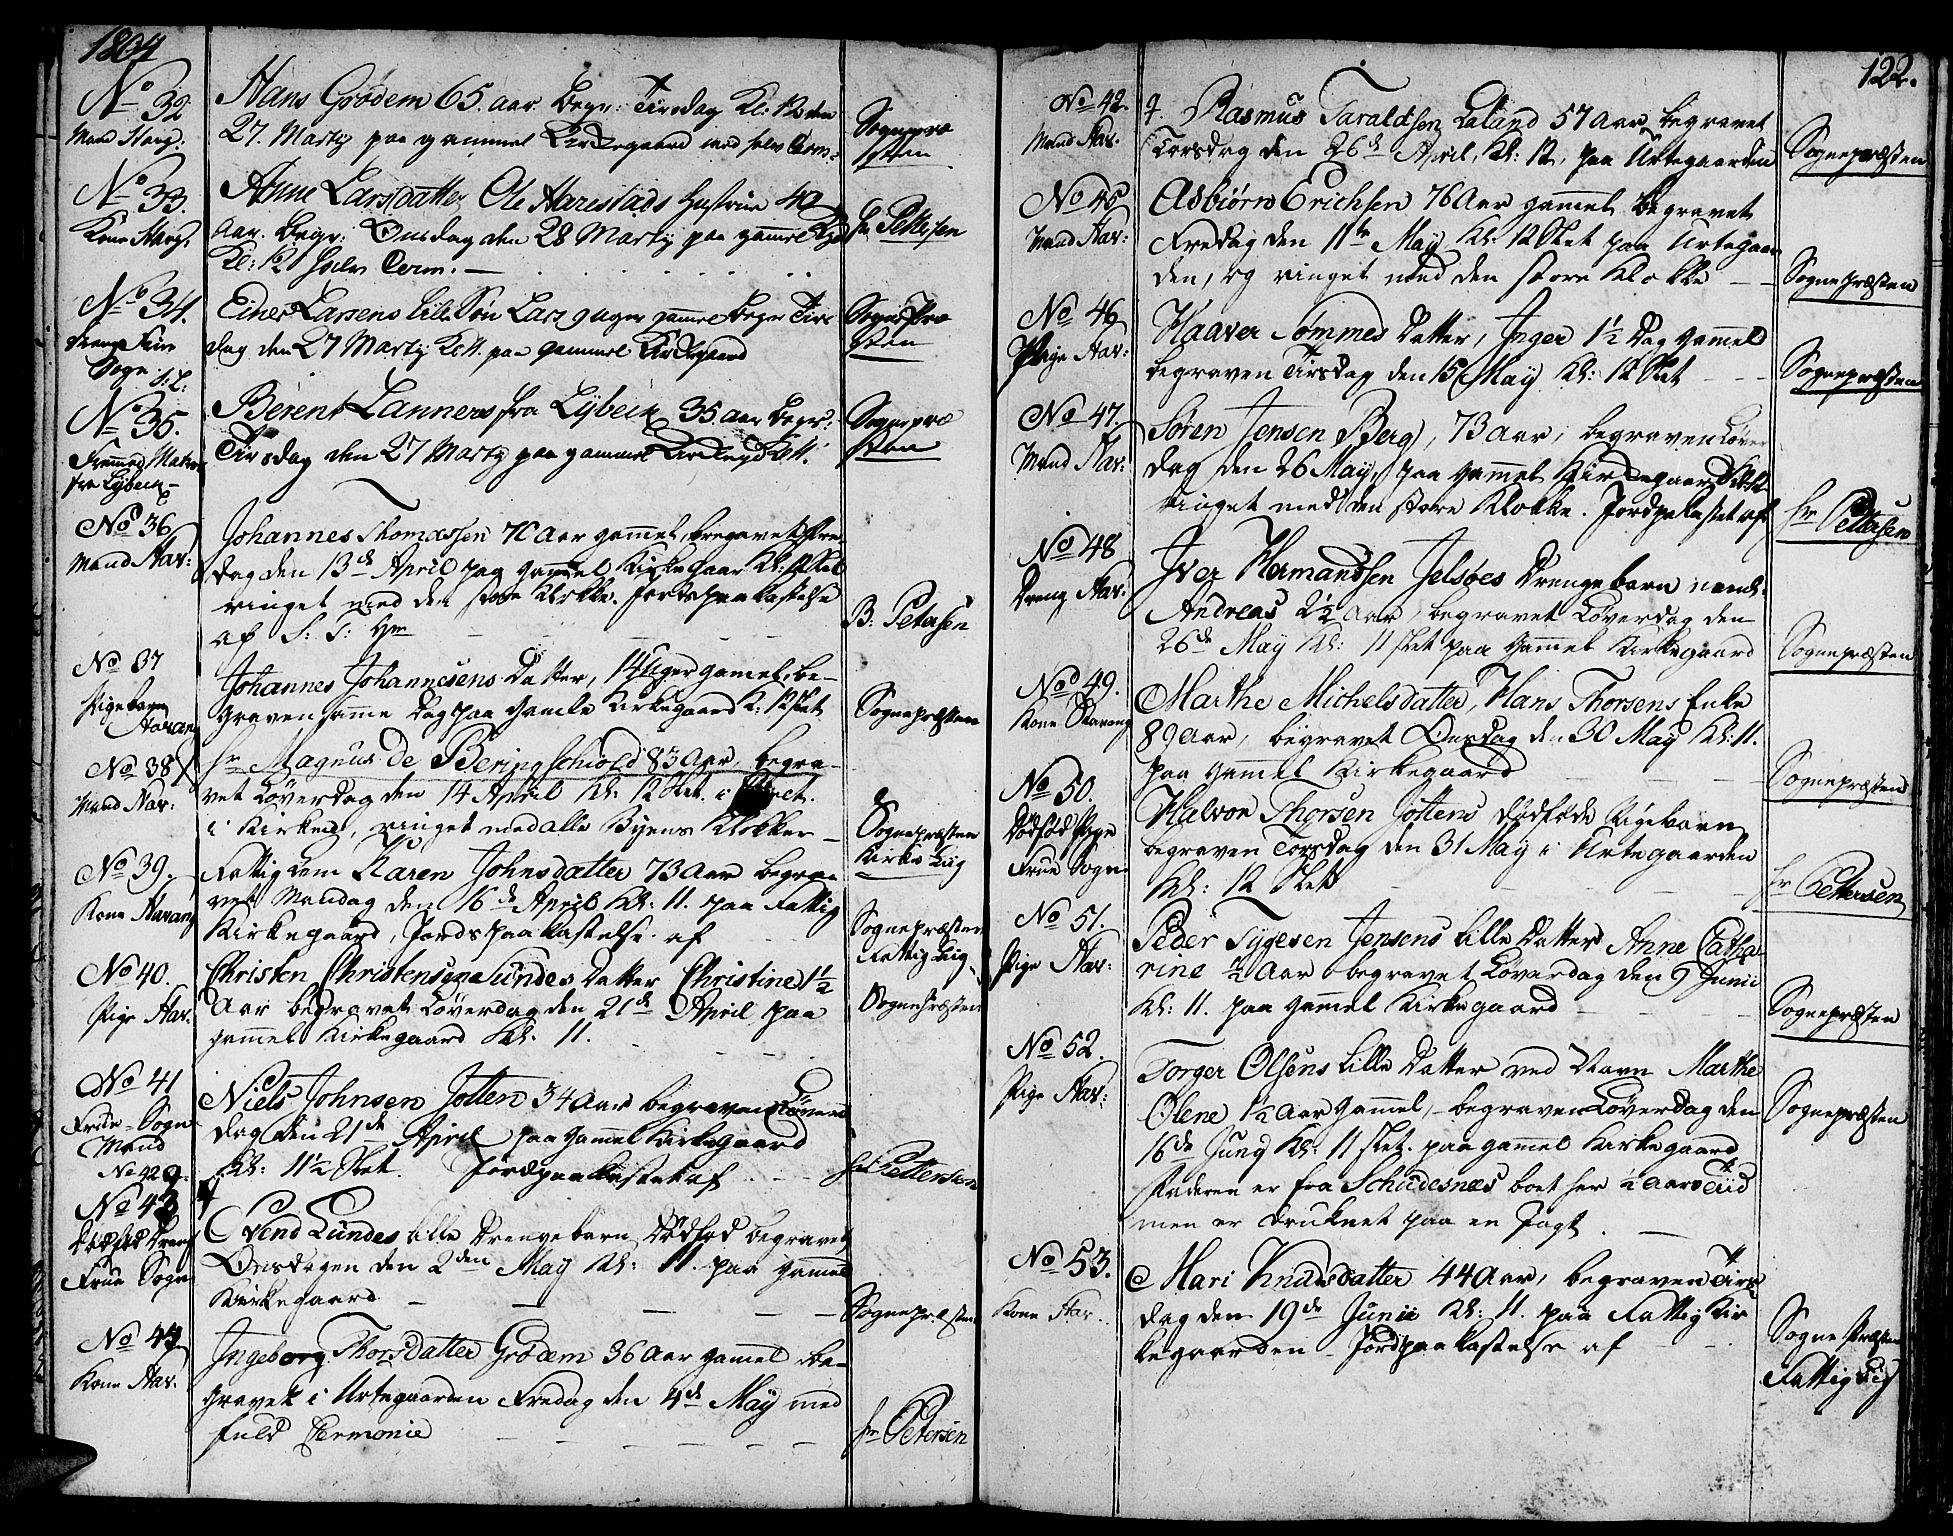 1804
No 32
Mand Stavg:
Hans Grødem 65. aar. begr: Tirsdag Kl: 12 den
27. Martij paa gammel Kirkegaard med halv Cerm:
Sognepræ
sten
No 33.
Kone Stavg:
Anne Larsdatter Ole Harestads Hustrue 40
aar. begr: Onsdag den 28 Martij paa gammel
Kl: 12 halv Cerm: —
Hr Pettersen
No 34.
Frue
Sogn
Einer Larsens lille Søn Lars 9 uger gammel begr Tirs
dag den 27 Martij Kl 11. paa gammel Kirkegaard
Sognepræ
sten
No 35.
Fremmed Matros
fra Lybeck
Berent Lanners fra Lybeck 35. aar begr:
Tirsdag den 27 Martij paa gammel Kl 11.
Sognepræ
sten
No 36
Mand Stav:
Johannes Thomassen 70 Aar gamel, begravet Fre
dag den 13de April paa Gammel Kirkegaar Kl: 12 Slet
ringet med den store Klokke. Jords paakastelse
af S: T: Hr
B: Petersen
No 37
Pigebarn
Stavang
Johannes Johannesens Datter, 14 Uger gamel, be-
graven samme Dag paa Gamle Kirkegaard K: 12 Slet
Sognepræsten
No 38
Mand Stav:
Hr Magnus De Beringschiold 83 Aar, begra-
vet Løverdag den 14 April Kl: 12 Slet. i
i Kirken, ringet med alle Byens Klokker —
Sognepræsten
Kirke Liig
No 39.
Kone Stavang
Fattig Lem Karen Johnsdatter 73 Aar begra
vet Mandag den 16de April Kl: 11. paa Fattig
Kirkegaard, Jords paakastelse af
Sognepræsten
Fattig Liig
No 40.
Pige Stav.
Christen Christensens Sundes Datter Christine 1½
Aar begravet Løverdag den 21de April paa
gammel Kirkegaard Kl. 11.
Sognepræsten
No 41
Frue - Sogn
Mand
Niels Johnsen Jotten 34 Aar begraven Løver
dag den 21de April paa Gammel Kirkegaard
Kl: 11½ Slet. Jordpaakastet af
Hr Pettersen
No 42 q.
No 43
Dødfød Dreng
Frue Sogn
Svend Lundes lille Drengebarn Dødfød begravet
Onsdagen den 2den May Kl: 11. paa Gamel
Kirkegaard
Sognepræsten
No 44
Kone Stav.
Ingeborg Thorsdatter Grødem 36 Aar gamel be-
gravet i Urtegaarden Fredag den 4de May med
fuld Cermonie
Hr Petersen
122.
No 42.
Mand Stav.
q. Rasmus Taraldsen Laland 57 Aar, begravet
Torsdag den 26de April, Kl: 12, paa Urtegaarden
Sognepræsten
No 45
Mand Stav:
Asbiørn Erichsen 76 Aar gamel begravet
Fredag den 11te May Kl: 12 Slet paa Urtegaar
den, og ringet med den store Klokke
Sognepræsten
No 46
Pige Stav:
Haaver Sømmes Datter, Inger 1½ Dag Gameld
begraven Tirsdag den 15 May Kl: 12 Slet
Sognepræsten
No 47.
Mand Stav:
Søren Jensen Berg, 73 Aar, begraven Løver
dag den 26 May, paa Gammel Kirkegaard
ringet med den store Klokke. Jordpakastet af
Hr Pettersen
No 48
Dreng Stav:
Iver Hermandsen Jelsøes Drengebarn navnl:
Andreas 2½ Aar, begravet Løverdag den
26de May Kl: 11 slet paa Gammel Kirkegaard
Sognepræsten
No 49.
Kone Stavang
Marthe Michelsdatter, Hans Thorsens Enke
89 Aar, begravet Onsdag den 30 May Kl: 11.
paa Gammel Kirkegaard
Sognepræsten
No 50.
Dødfød Pige
Frue Sogn
Halvor Thorsen Jottens dødføde Pigebarn
begraven Torsdag den 31 May i Urtegaarden
Kl: 12 Slet
Hr Pettersen
No 51.
Pige Stav:
Peder Tygesen Jensens lille Datter Anne Catha-
rine ½ Aar begravet Løverdag den 9 Junii
Kl: 11. paa Gammel Kirkegaard
Sognepræsten
No 52.
Pige Stav:
Torger Olsens lille Datter ved Navn Marthe
Olene 1½ Aar Gammel, begraven Løverdag den
16de Juny Kl: 11 slet. paa Gammel Kirkegaard,
Faderen er fra Schudesnæs boet her ½ Aars Tiid
men er druknet paa en Jagt.
Sognepræsten
No 53.
Kone Stav.
Mari Knudsdatter 44 Aar, begraven Tirs
dag den 19de Junii Kl: 11. paa Fattig Kir
kegaarden – Jordpaakastelse af
Sognepræsten
Fattig Liig